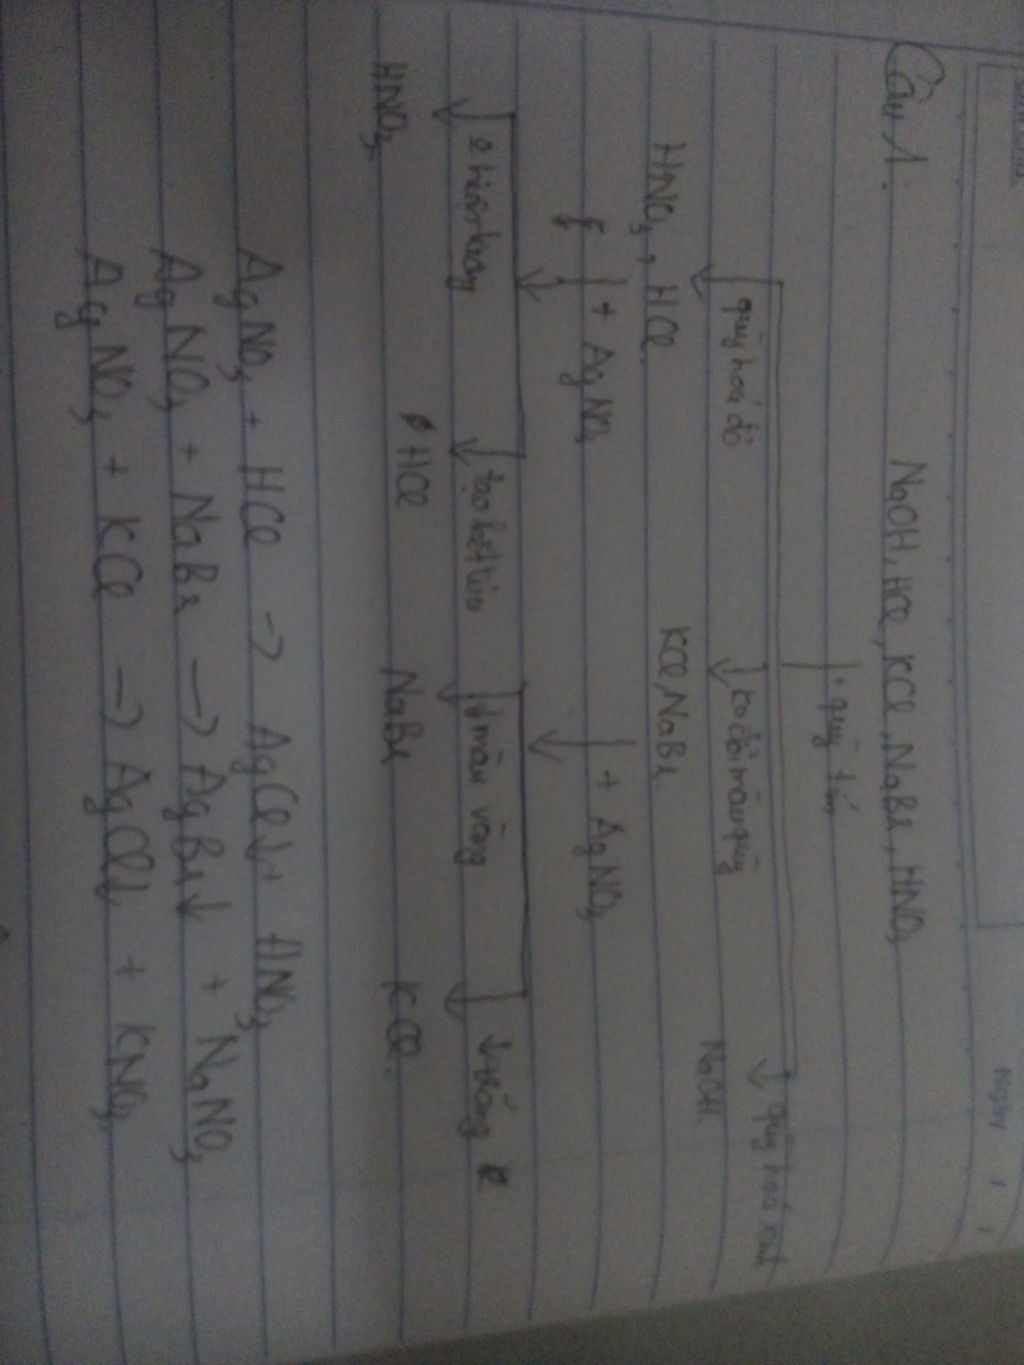 Ngày / /
Câu 1:
NaOH, HCl, KCl, NaBr, HNO3
quỳ tím
quỳ hoá đỏ ko đổi màu quỳ quỳ hoá xanh
HNO3, HCl KCl, NaBr NaOH
+ AgNO3 + AgNO3
hiện tượng tạo kết tủa ↓ màu vàng ↓ trắng
HNO3 HCl NaBr KCl
AgNO3 + HCl → AgCl↓ + HNO3
AgNO3 + NaBr → AgBr↓ + NaNO3
AgNO3 + KCl → AgCl↓ + KNO3